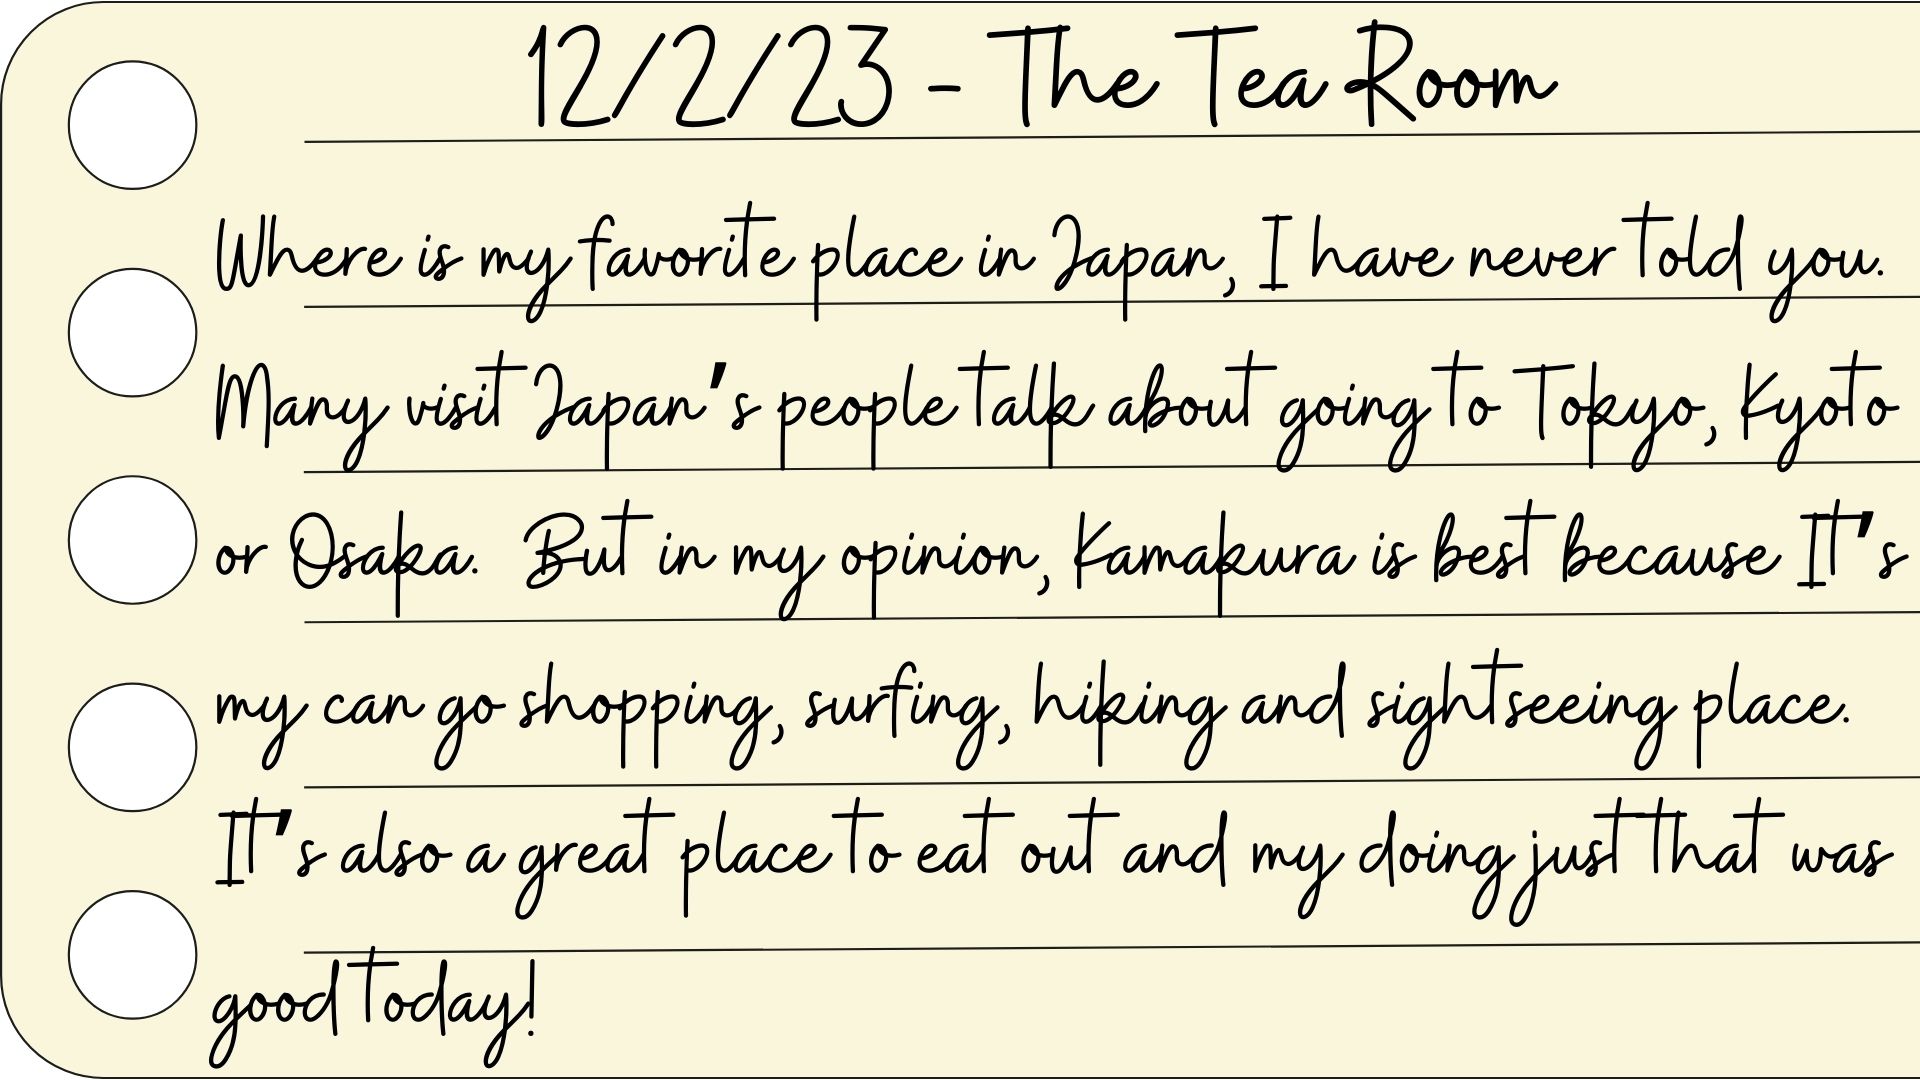 12/2/23 - The Tea Room
Where is my favorite place in Japan, I have never told you.
Many visit Japan's people talk about going to Tokyo, Kyoto
or Osaka. But in my opinion, Kamakura is best because It's
my can go shopping, surfing, hiking and sightseeing place.
It's also a great place to eat out and my doing just that was
good today!